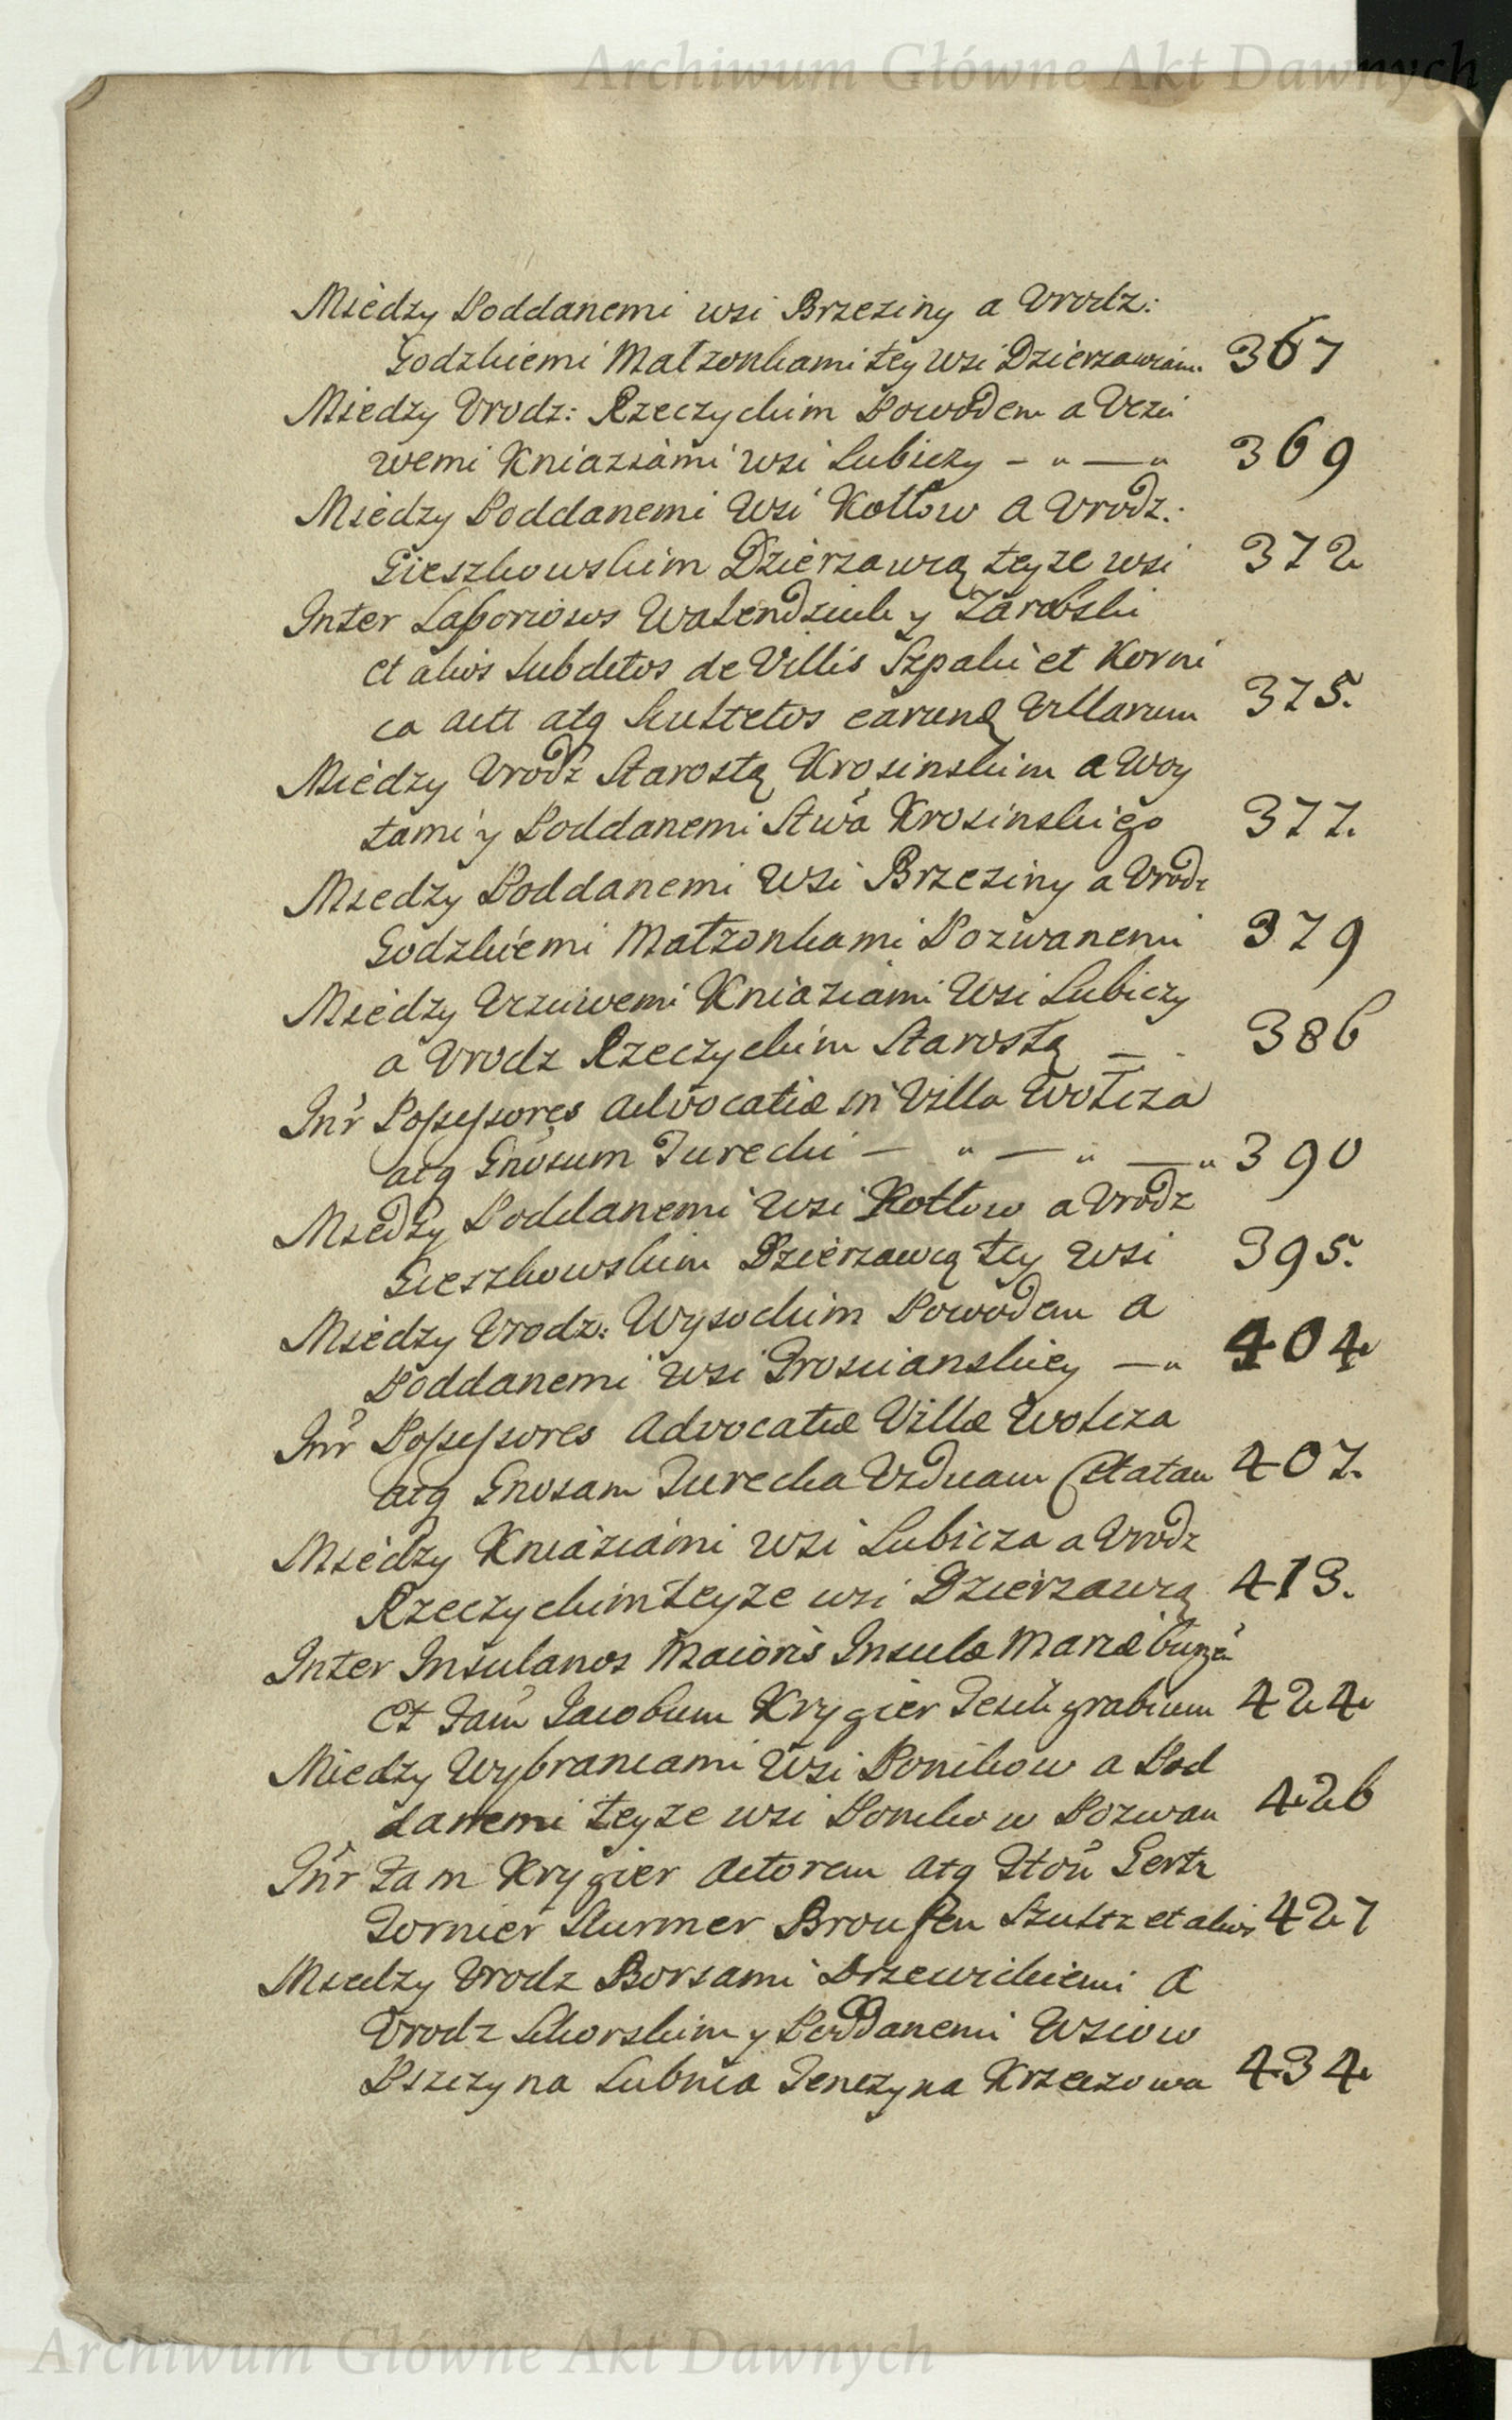 Archiwum Główne Akt Dawnych
Między Poddanemi wsi Brzeziny a Vrodz:
Godzkiemi Małzonkami tey wsi Dzierzawcam. 367
Między Vrodz: Rzeczyckim Powodem a Vczci
wemi Kniaziami wsi Lubiczy — " — " 369
Między Poddanemi wsi Kotłow a Vrodz:
Gieszkowskim Dzierzawcą teyze wsi 372
Inter Laboriosos Walendziuk y Zarobski
et alios subditos de Villis Szpaki et Korni
ca act atq Scultetos earund Villarum 375.
Między Vrodz Starostą Krosinskim a Woy
tami y Poddanemi Stwa Krosinskiego 377.
Między Poddanemi wsi Brzeziny a Vrodz
Godzkiemi Małzonkami Pozwanemi 379
Między Vczciwemi Kniaziami wsi Lubiczy
a Vrodz Rzeczyckim Starostą — . 386
Intr Possessores Advocatiæ in Villa Wołcza
atq Gnosum Turecki — " — " — " 390
Między Poddanemi wsi Kotłow a Vrodz
Gieszkowskim Dzierzawcą tey wsi 395.
Między Vrodz: Wysockim Powodem a
Poddanemi wsi Trosciaanskiey — " 404
Intr Possessores Advocatiæ Villæ Wołcza
atq Gnosam Turecka Viduam Citatam 407.
Między Kniaziami wsi Lubicza a Vrodz
Rzeczyckim teyze wsi Dzierzawcą 413.
Inter Insulanos Maioris Insulæ Mariæburgen
et Fam Jacobum Krygier Teichgrabium 424
Miedzy Wybrancami wsi Ponikow a Pod
danemi teyze wsi Ponikow Pozwan 426
Intr Fam Krygier Actorem atq Ittos Gertz
Tornier Sturmer Broussen Szultz et alios 427
Miedzy Vrodz Borsami Drzewickiemi a
Vrodz Sikorskim y Poddanemi Wsiow
Pszczyna Lubnia Tenczyna Krzeczowa 434
Archiwum Główne Akt Dawnych